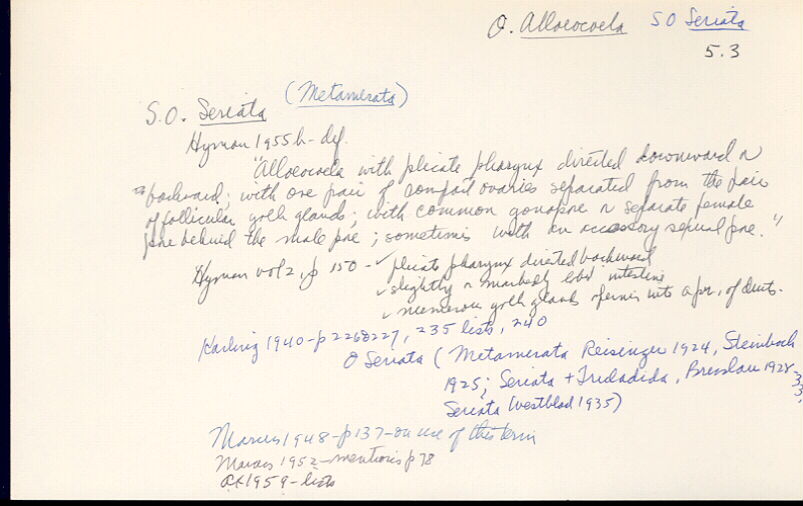 O. Alloeocoela SO Seriata
5.3
S.O. Seriata (Metamerata)
Hyman 1955b - def.
"Alloeocoela with plicate pharynx directed downward or
backward; with one pair of compact ovaries separated from the pair
of follicular yolk glands; with common gonopore or separate female
pore behind the male pore; sometimes with an accessory sexual pore."
Hyman vol 2, p 150 - ✓ plicate pharynx directed backward
✓ slightly or markedly lobed intestine
✓ numerous yolk glands opening into a pr. of ducts.
Karling 1940 - p 226&227, 235 lists, 240
O Seriata (Metamerata Reisinger 1924, Steinboch
1925; Seriata + Tridadida, Bresslau 1928-33,
Seriata (Westblad 1935)
Marcus 1948 - p 137 - on use of this term
Marcus 1952 - mentions p 78
1959 - lists